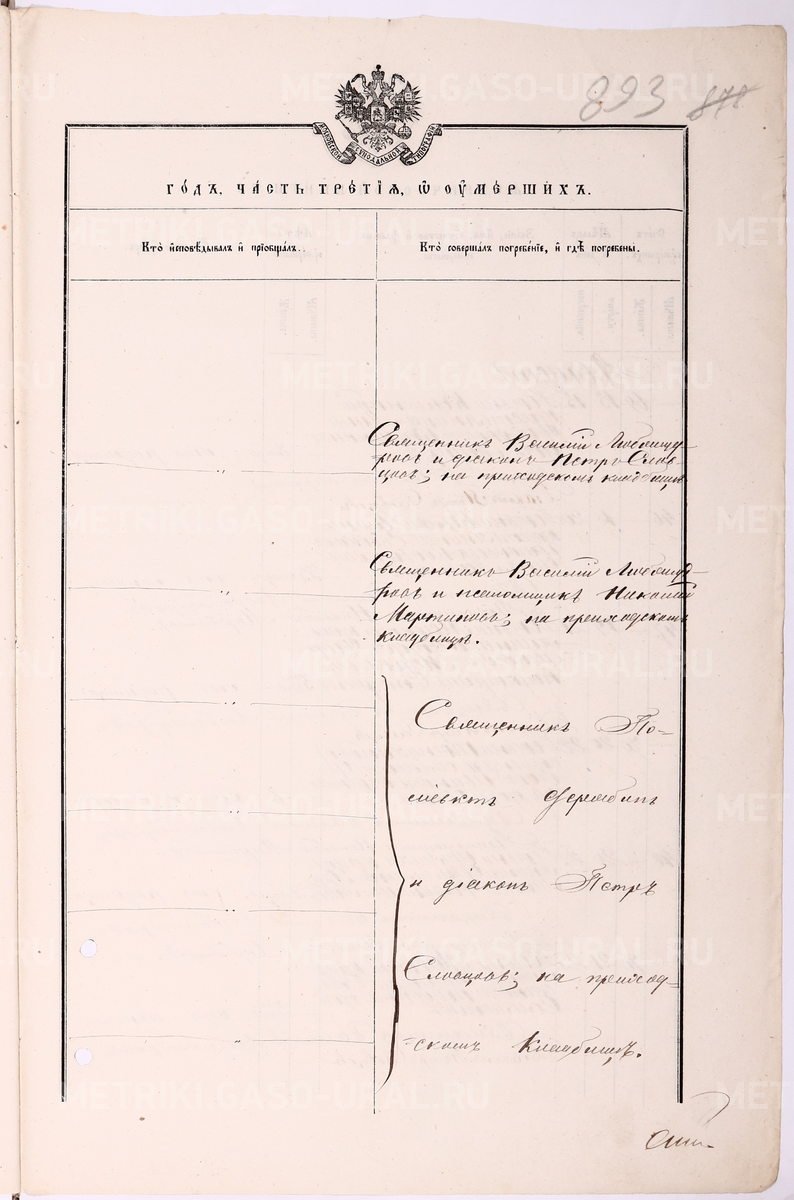 893 878
МОСКОВСКОЙ СѴНОДАЛЬНОЙ ТИПОГРАФІИ
го́дъ, ча́сть тре́тїѧ, ѡ᷍ оу҆ме́ршихъ.
Кто̀ и҆сповѣ́дывалъ и҆ прїобща́лъ.
Кто̀ соверша́лъ погребе́нїе, и҆ гдѣ̀ погребены̀.
Священникъ Василій Любомуд-
ровъ и діаконъ Петръ Слов-
цовъ; на приходскомъ кладбищѣ
Священникъ Василій Любомуд-
ровъ и псаломщикъ Николай
Мартиновъ; на приходскомъ
кладбищѣ.
Священникъ По-
ліевктъ Дерябинъ
и діаконъ Петръ
Словцовъ; на приход-
скомъ кладбищѣ.
METRIKI.GASO-URAL.RU